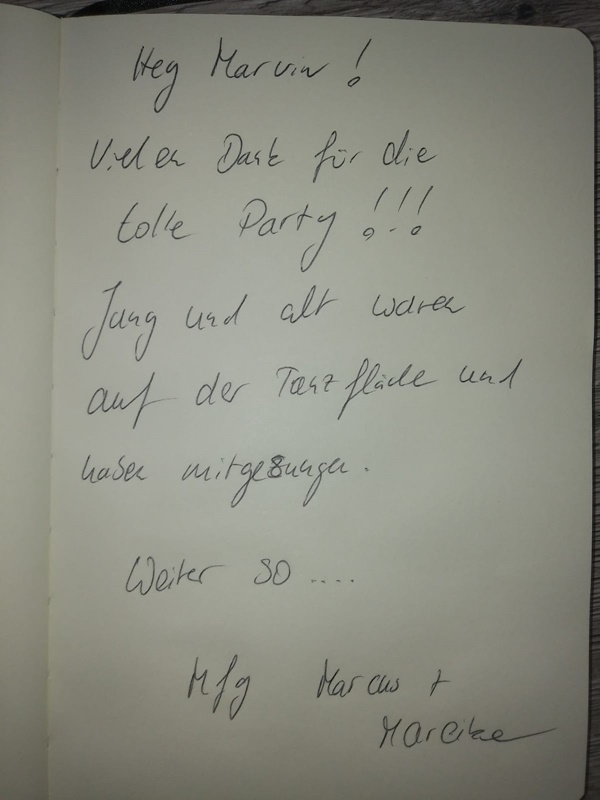 Hey Marvin!
Vielen Dank für die
tolle Party!!!
Jung und alt waren
auf der Tanzfläche und
haben mitgesungen.
Weiter so ....
Mfg Marcus +
Mareike